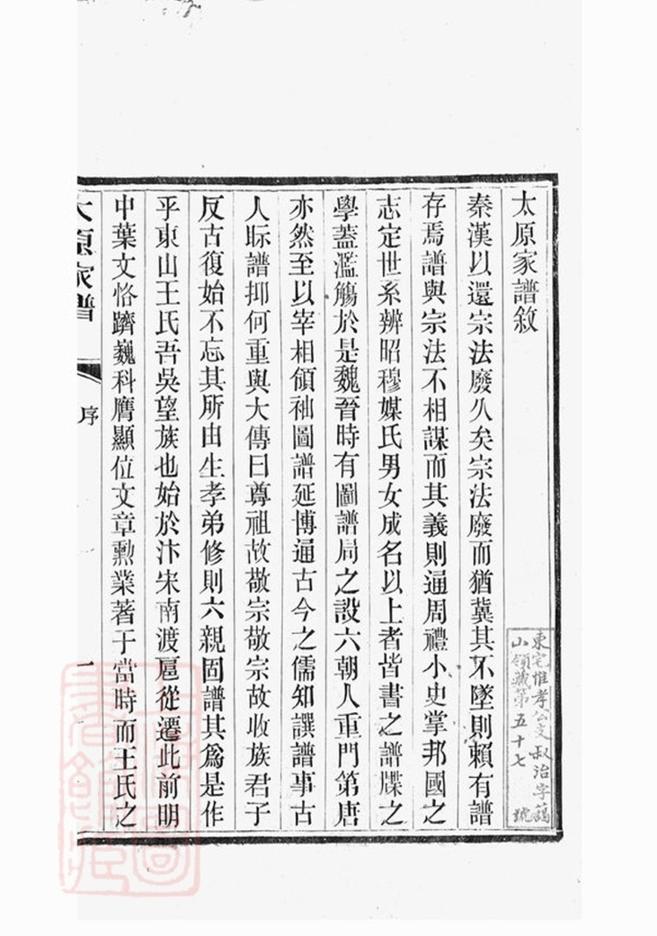 太原家譜敘
東宅惟孝公支叔治字鶴
山領藏第五十七號
秦漢以還宗法廢久矣宗法廢而猶冀其不墜則賴有譜
存焉譜與宗法不相謀而其義則通周禮小史掌邦國之
志定世系辨昭穆媒氏男女成名以上者皆書之譜牒之
學蓋濫觴於是魏晉時有圖譜局之設六朝人重門第唐
亦然至以宰相領袖圖譜延博通古今之儒知譔譜事古
人眎譜抑何重與大傳曰尊祖故敬宗敬宗故收族君子
反古復始不忘其所由生孝弟修則六親固譜其爲是作
乎東山王氏吾吳望族也始於汴宋南渡扈從遷此前明
中葉文恪躋巍科膺顯位文章勳業著于當時而王氏之
太原家譜
序
一